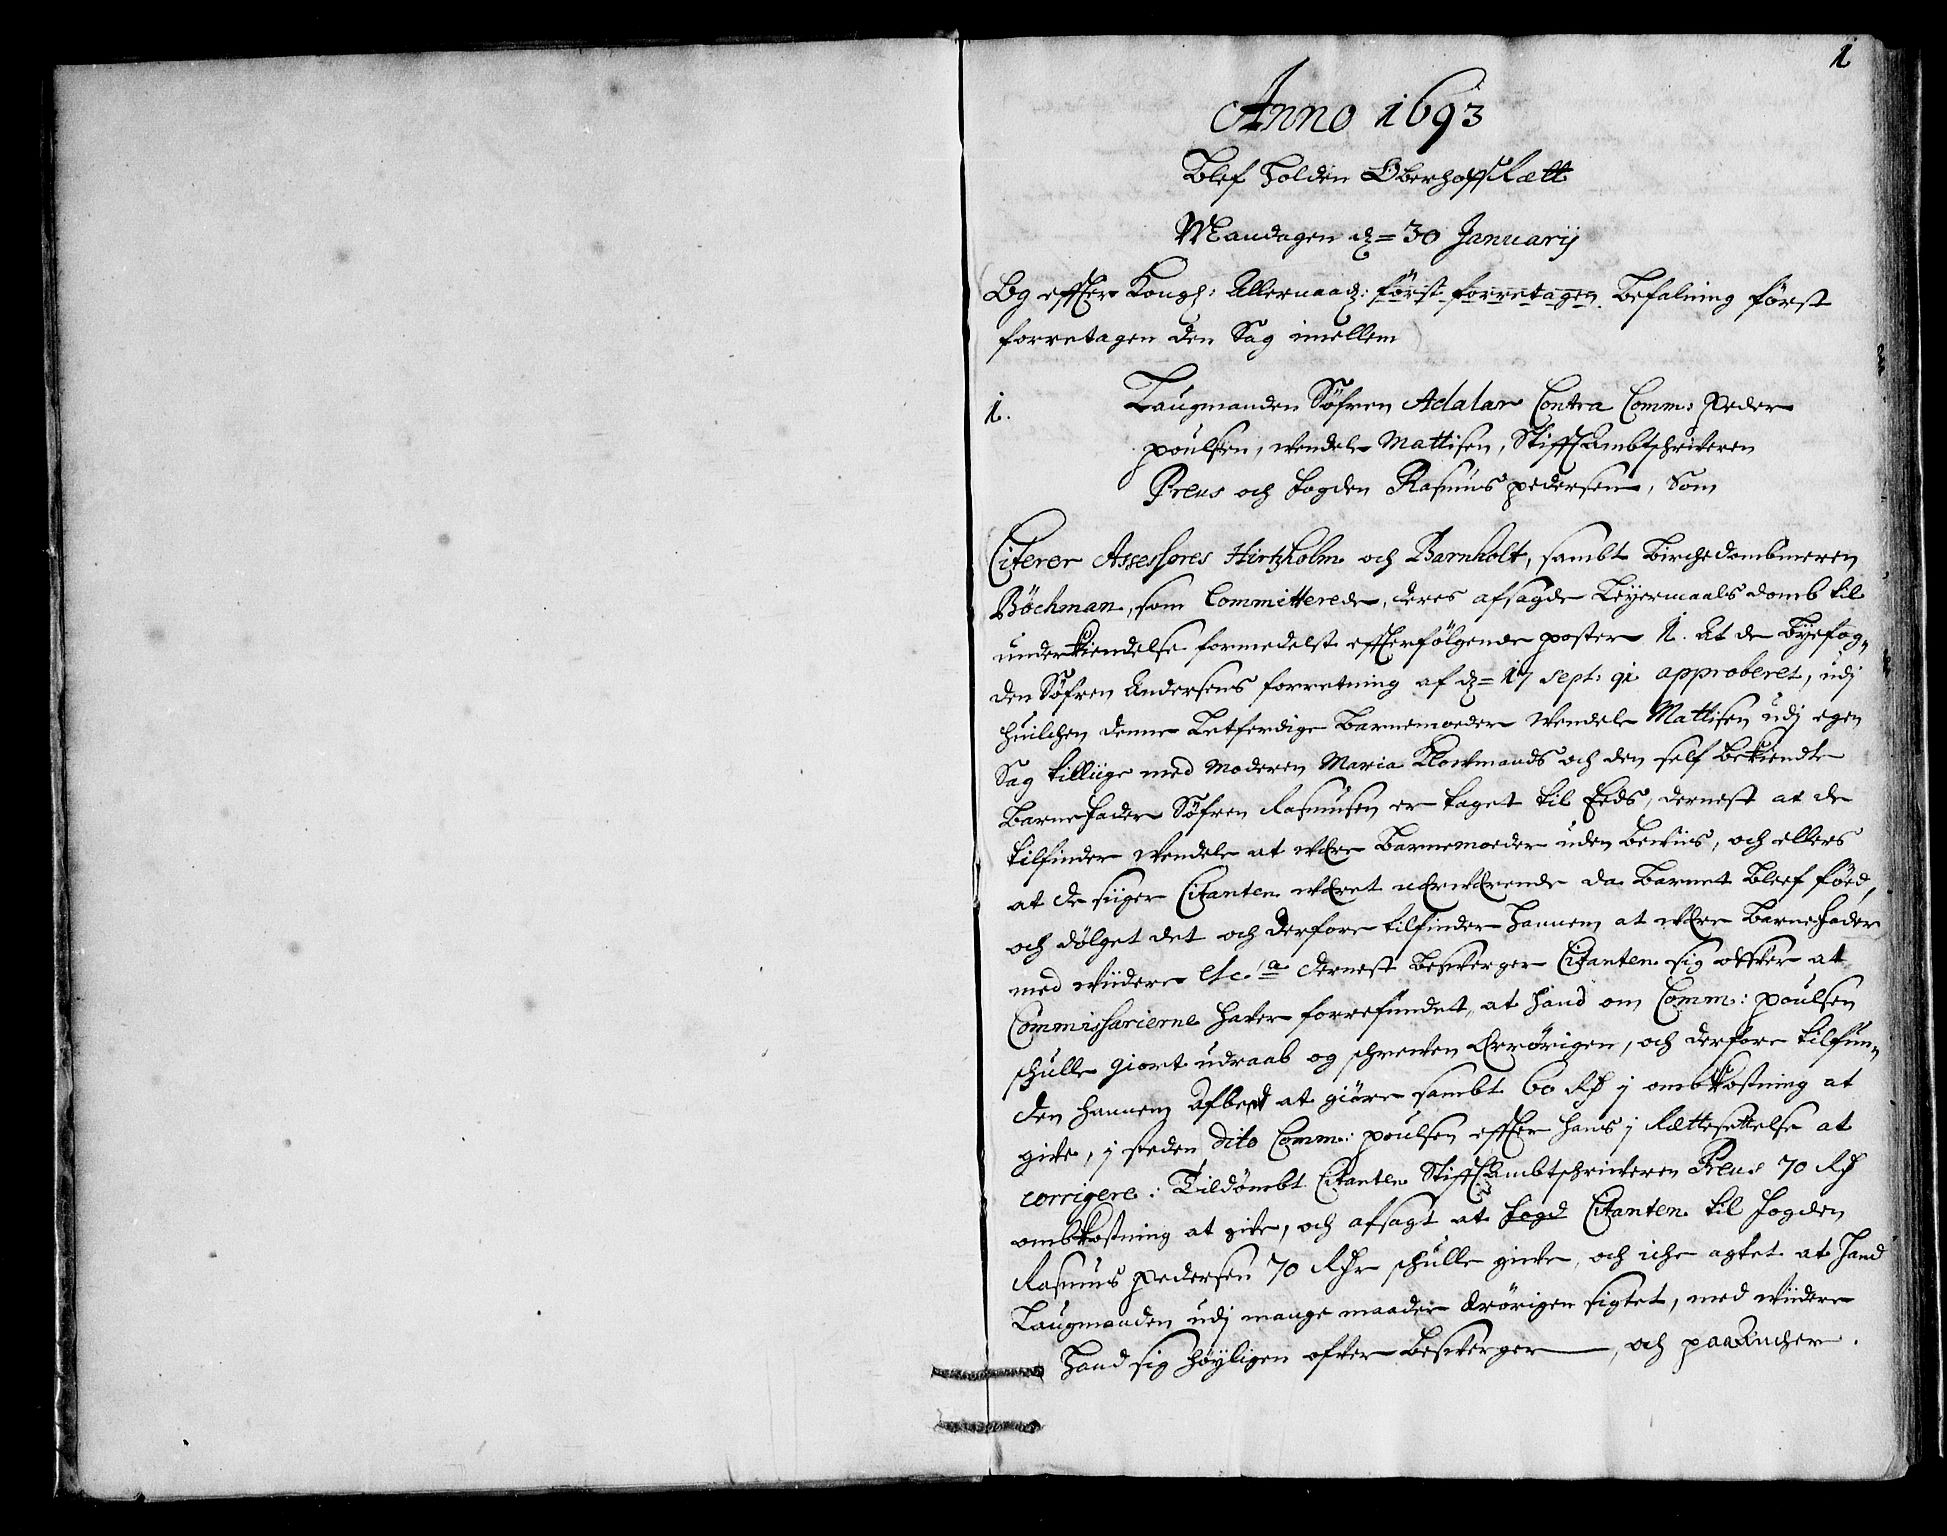 1
Anno 1693
Blef Holden OberhofRætt
Mandagen d= 30 Januarij
Og effter Kongl: Allernaad: først forretagen Befalning først
forretagen den Sag imellem
1. Laugmanden Søfren Adalar Contra Comm: Peder
poulsen, Wendele Mattisen, StifftAmbtschriveren
Preus och fogden Rasmus pedersen, Som
Citerer Assessores Hirtzholm och Barnholt, sambt Birchedombmeren
Böchman, som Committerede, deres afsagde Leyermaals domb til
underkiendelse formedelst effterfølgende poster 1. At de Byefog-
den Søfren Andersens forretning af d= 17 sept: 91 approberet, udj
huilchen denne Letferdige Barnemoeder Wendele Mattisen udj egen
Sag tilliige med Moderen Maria Klockmands och den self bekiendte
Barnefader Søfren Rasmusen er taget til Eeds, dernest at de
tilfinder Wendele at være Barnemoeder uden beviis, och ellers
at de siiger Citanten været nærværende da Barnet Bleef føed,
och dølget det och derfore tilfinder hannem at være Barnefader
med viidere etc.a dernest besverger Citanten sig offver at
Commissarierne hafver forrefundet, at hand om Comm: poulsen
schulle giort udraab og schreven Ærrørigen, och derfore tilfun-
den hannem Afbedt at giöre sambt 60 Rd j ombkostning at
give, j steden dito Comm: poulsen effter hans j Rættesettelse at
corrigere: Tildömbt Citanten StifftAmbtschriveren Preus 70 Rd
ombkostning at give, och afsagt at fogd Citanten til fogden
Rasmus pedersen 70 Rdr schulle give, och iche agtet at hand
Laugmanden udj mange maader ærørigen sigtet, med viidere
hand sig høyligen ofver besverger, och paaAncher.